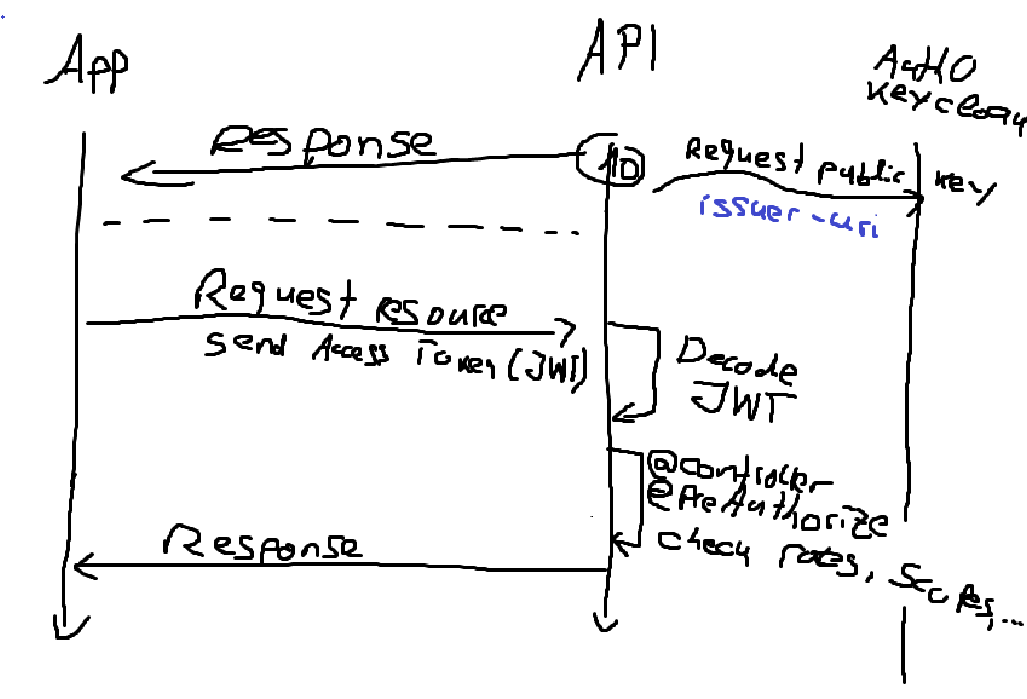 App
API
Auth0
Keycloak
Response
10
Request public key
issuer-uri
Request resource
Send Access Token (JWT)
Decode
JWT
@controller
@PreAuthorize
check roles, Scopes,...
Response